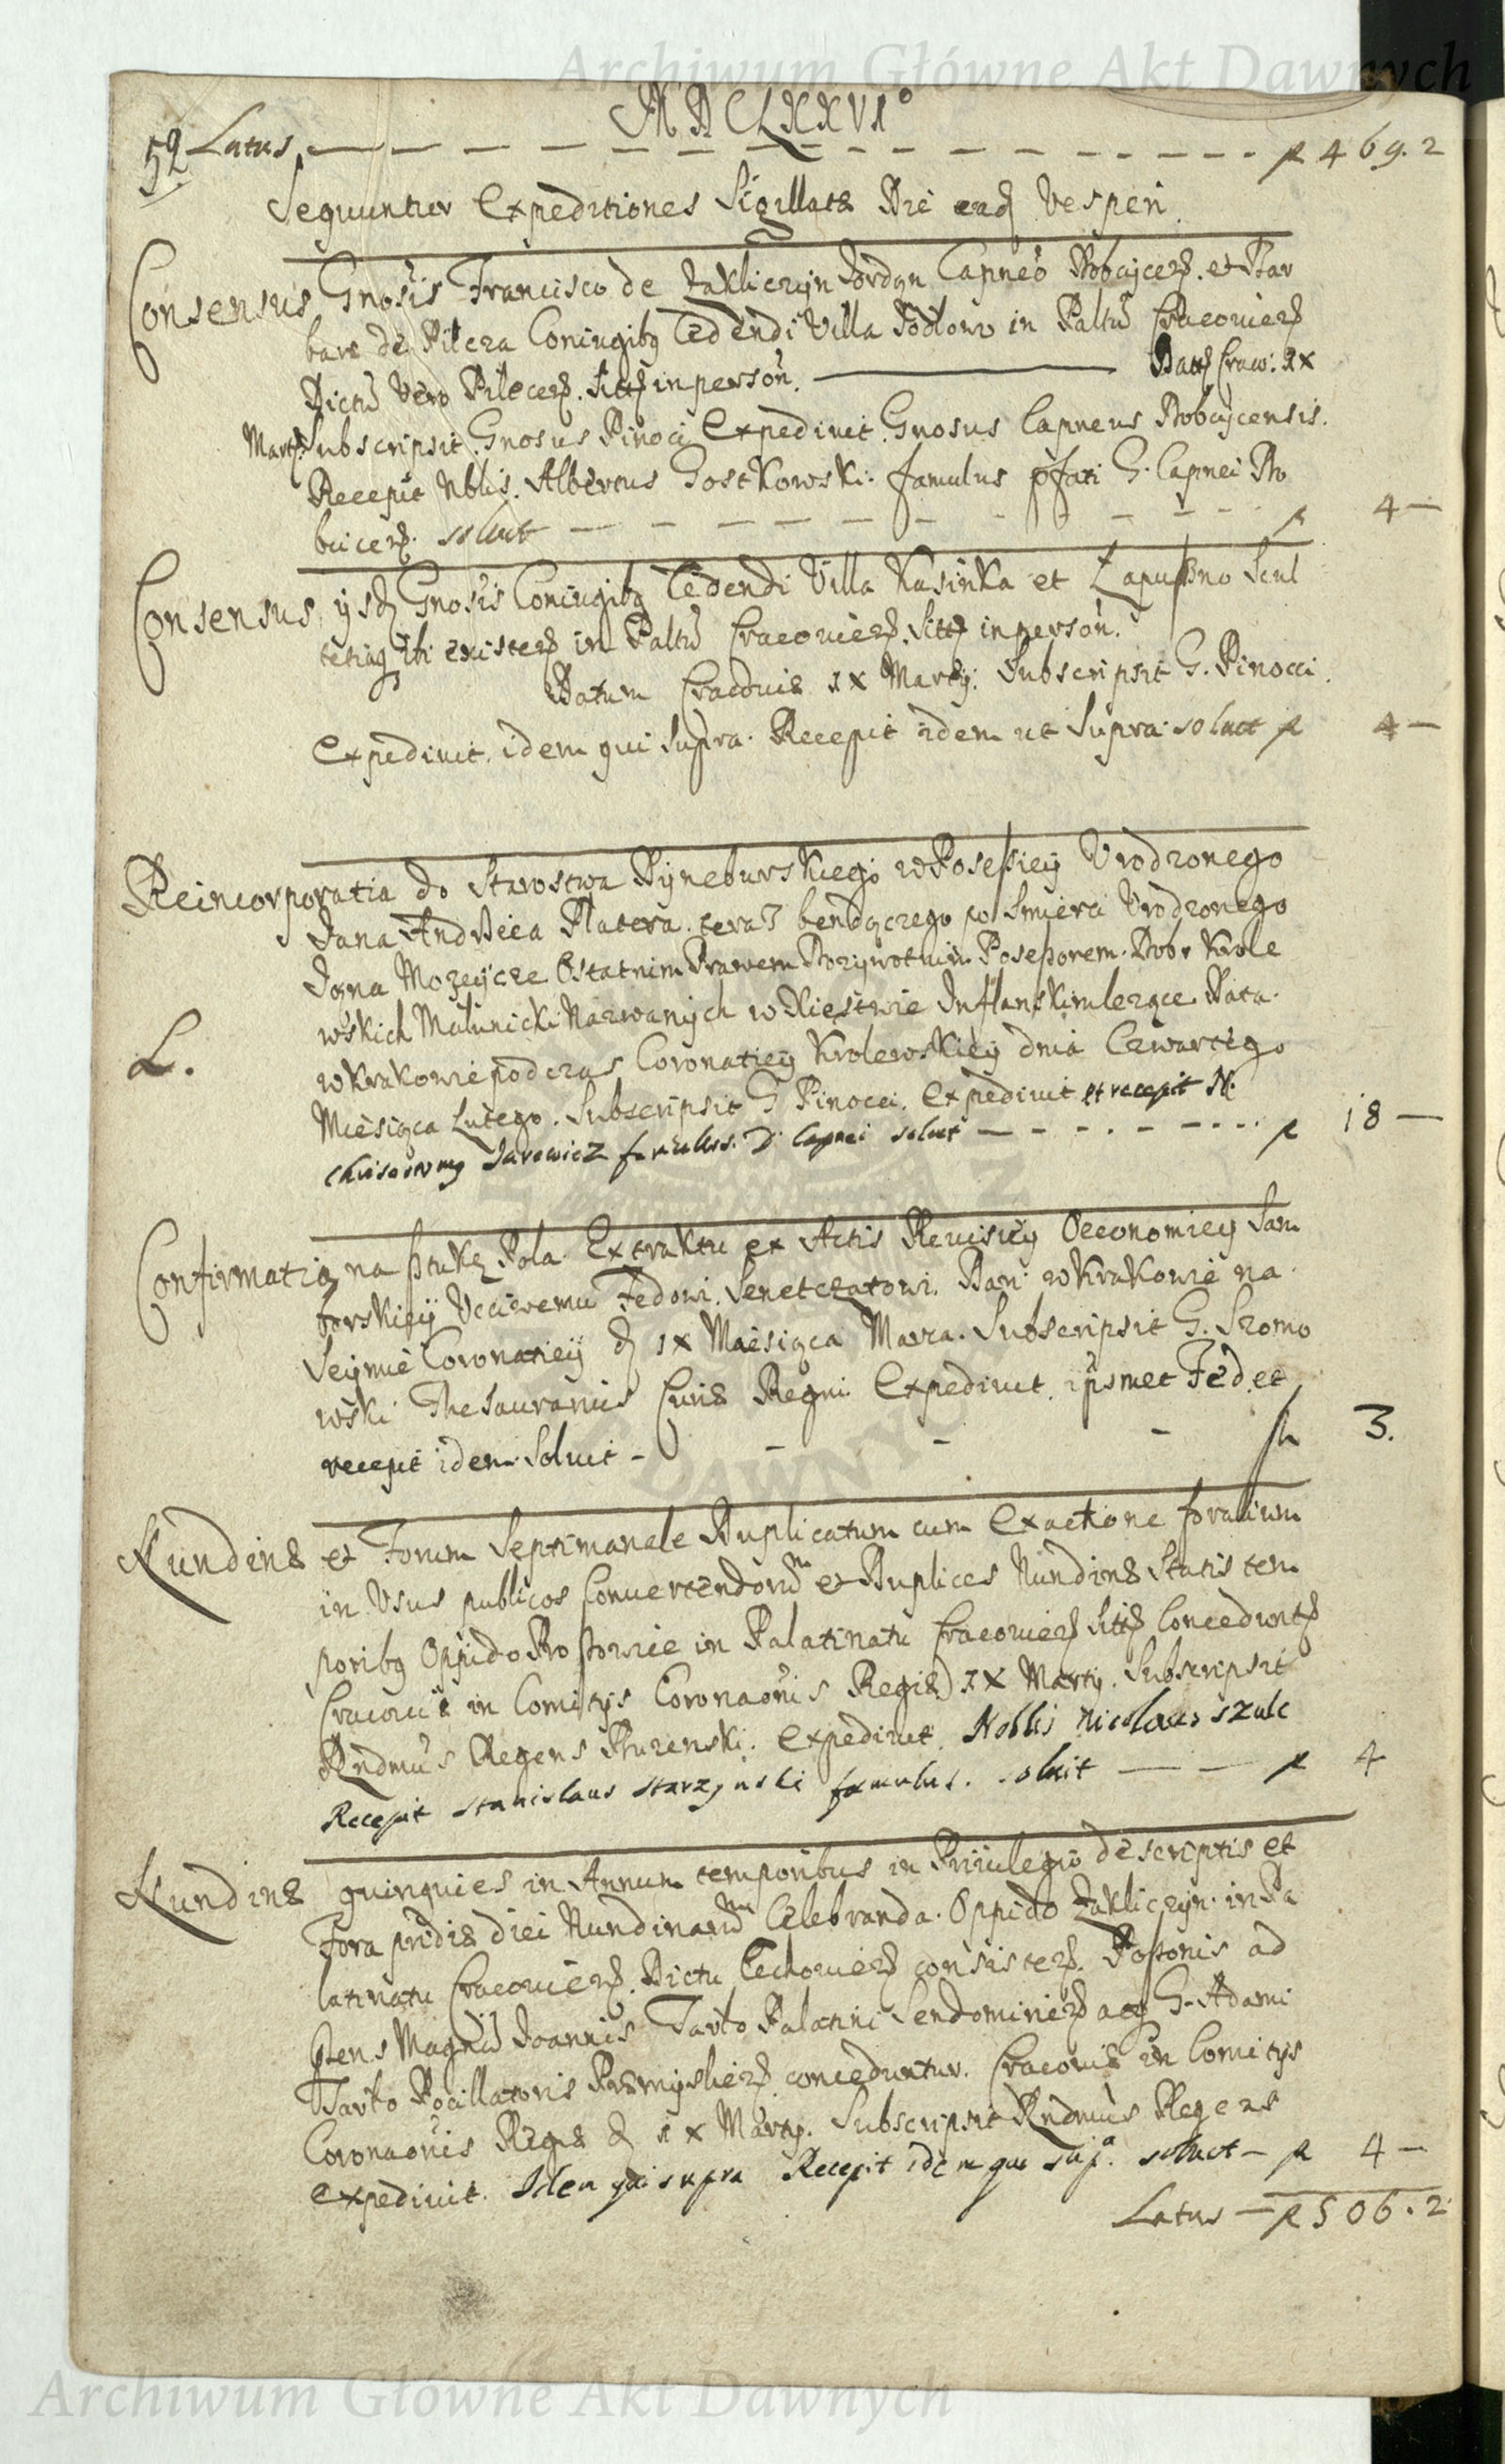 Archiwum Główne Akt Dawnych
MDCLXXVI°
52 Latus — — — — — — — — — — p 469. 2
Sequuntur Expeditiones Sigillatæ Die ead Vesperi
Consensus Gnosis Francisco de Zakliczyn Jordan Capneo Dobczycen. et Bar
bare de Pilcza Coniugibq Cedendi Villa Podlowo in Paltu Cracovien
Dictu vero Pilecen. Sitt in person. Datt Crac: IX
Marty. Subscripsit Gnosus Pinoci Expedivit Gnosus Capneus Dobczycensis.
Recepit Nblis. Albertus Gostkowski famulus pfati G. Capnei Do
bcicen. soluit — — — — — — — — p 4 —
Consensus ijsd Gnosis Coniugibq Cedendi Villa Kasinka et Łapuszno Scul
tetiaq Ibi existen in Paltu Cracovien. Sitt in person.
Datum Cracoviæ IX Martij. Subscripsit G. Pinocci.
Expedivit idem qui supra. Recepit idem ut supra soluit p 4 —
Reincorporatia do Starostwa Dyneburskiego w Possessiey Urodzonego
Jana Andrzeia Platera teraz bendączego po smierci Urodzonego
Jana Mozeycze Ostatnim Prawem Dozywotnim Possessorem. Dobr Krole
wskich Malunicki Nazwanych w Xięstwie Inflanskim lezące. Data.
L.
w Krakowie podczas Coronatiey Krolewskiey dnia Czwartego
Miesiąca Lutego. Subscripsit G Pinocci. Expedivit et recepit N.
Jarowicz famulus. D. Capnei soluit — — — — — p 18 —
Confirmatia na sztukę Pola Extraktu ex Actis Revisiey Oeconomiey Sam
borskiey Ucciwemu Fedowi Senetczatowi. Dan w Krakowie na
Seymie Coronatiey d IX Miesiąca Marca. Subscripsit G. Szomo
wski Thesaurarius Curiæ Regni Expedivit ipsmet Fed. et
recepit idem Soluit — — — — p 3.
Nundinæ et Forum Septimanale Duplicatum cum Exactione foralium
in Usus publicos Convertendorum et Duplices Nundinæ Statis tem
poribq Oppido Proszowie in Palatinatu Cracovien Sitt Conceduntr
Cracoviæ in Comitys Coronaonis Regiæ) IX Marty. Subscripsit
Rndmus Regens Expedivit. Noblis Nicolaus szulc
Recepit stanislaus starzynski famulus. soluit — — p 4
Nundinæ quinquies in Annum temporibus in Priuilegio descriptis et
Fora pridiæ diei Nundinarum Celebranda. Oppido Zakliczyn in Pa
latinatu Cracovien. Dictu Czchovien consisten. Possonis ad
Magnci Joannis Tarlo Palatini Sendomirien acq G. Adami
Tarlo Pocillatoris Præmyslien conceduntur. Cracoviæ in Comitys
Coronaonis Regiæ d IX Marty. Subscripsit Rndmus Regens
Expedivit. Idem qui supra Recepit idem qui supa. soluit — p 4 —
Latus — p 506. 2
Archiwum Główne Akt Dawnych